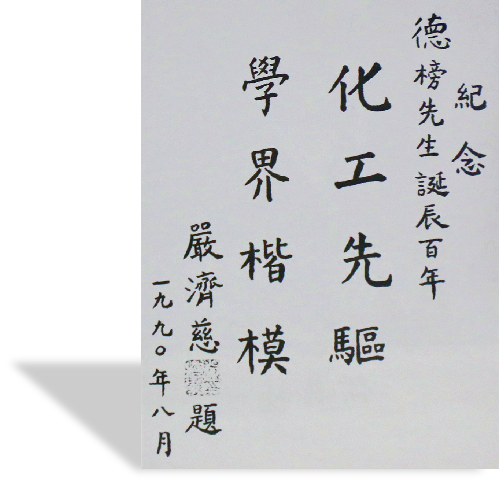 紀念
德榜先生誕辰百年
化工先驅
學界楷模
嚴濟慈題
一九九〇年八月